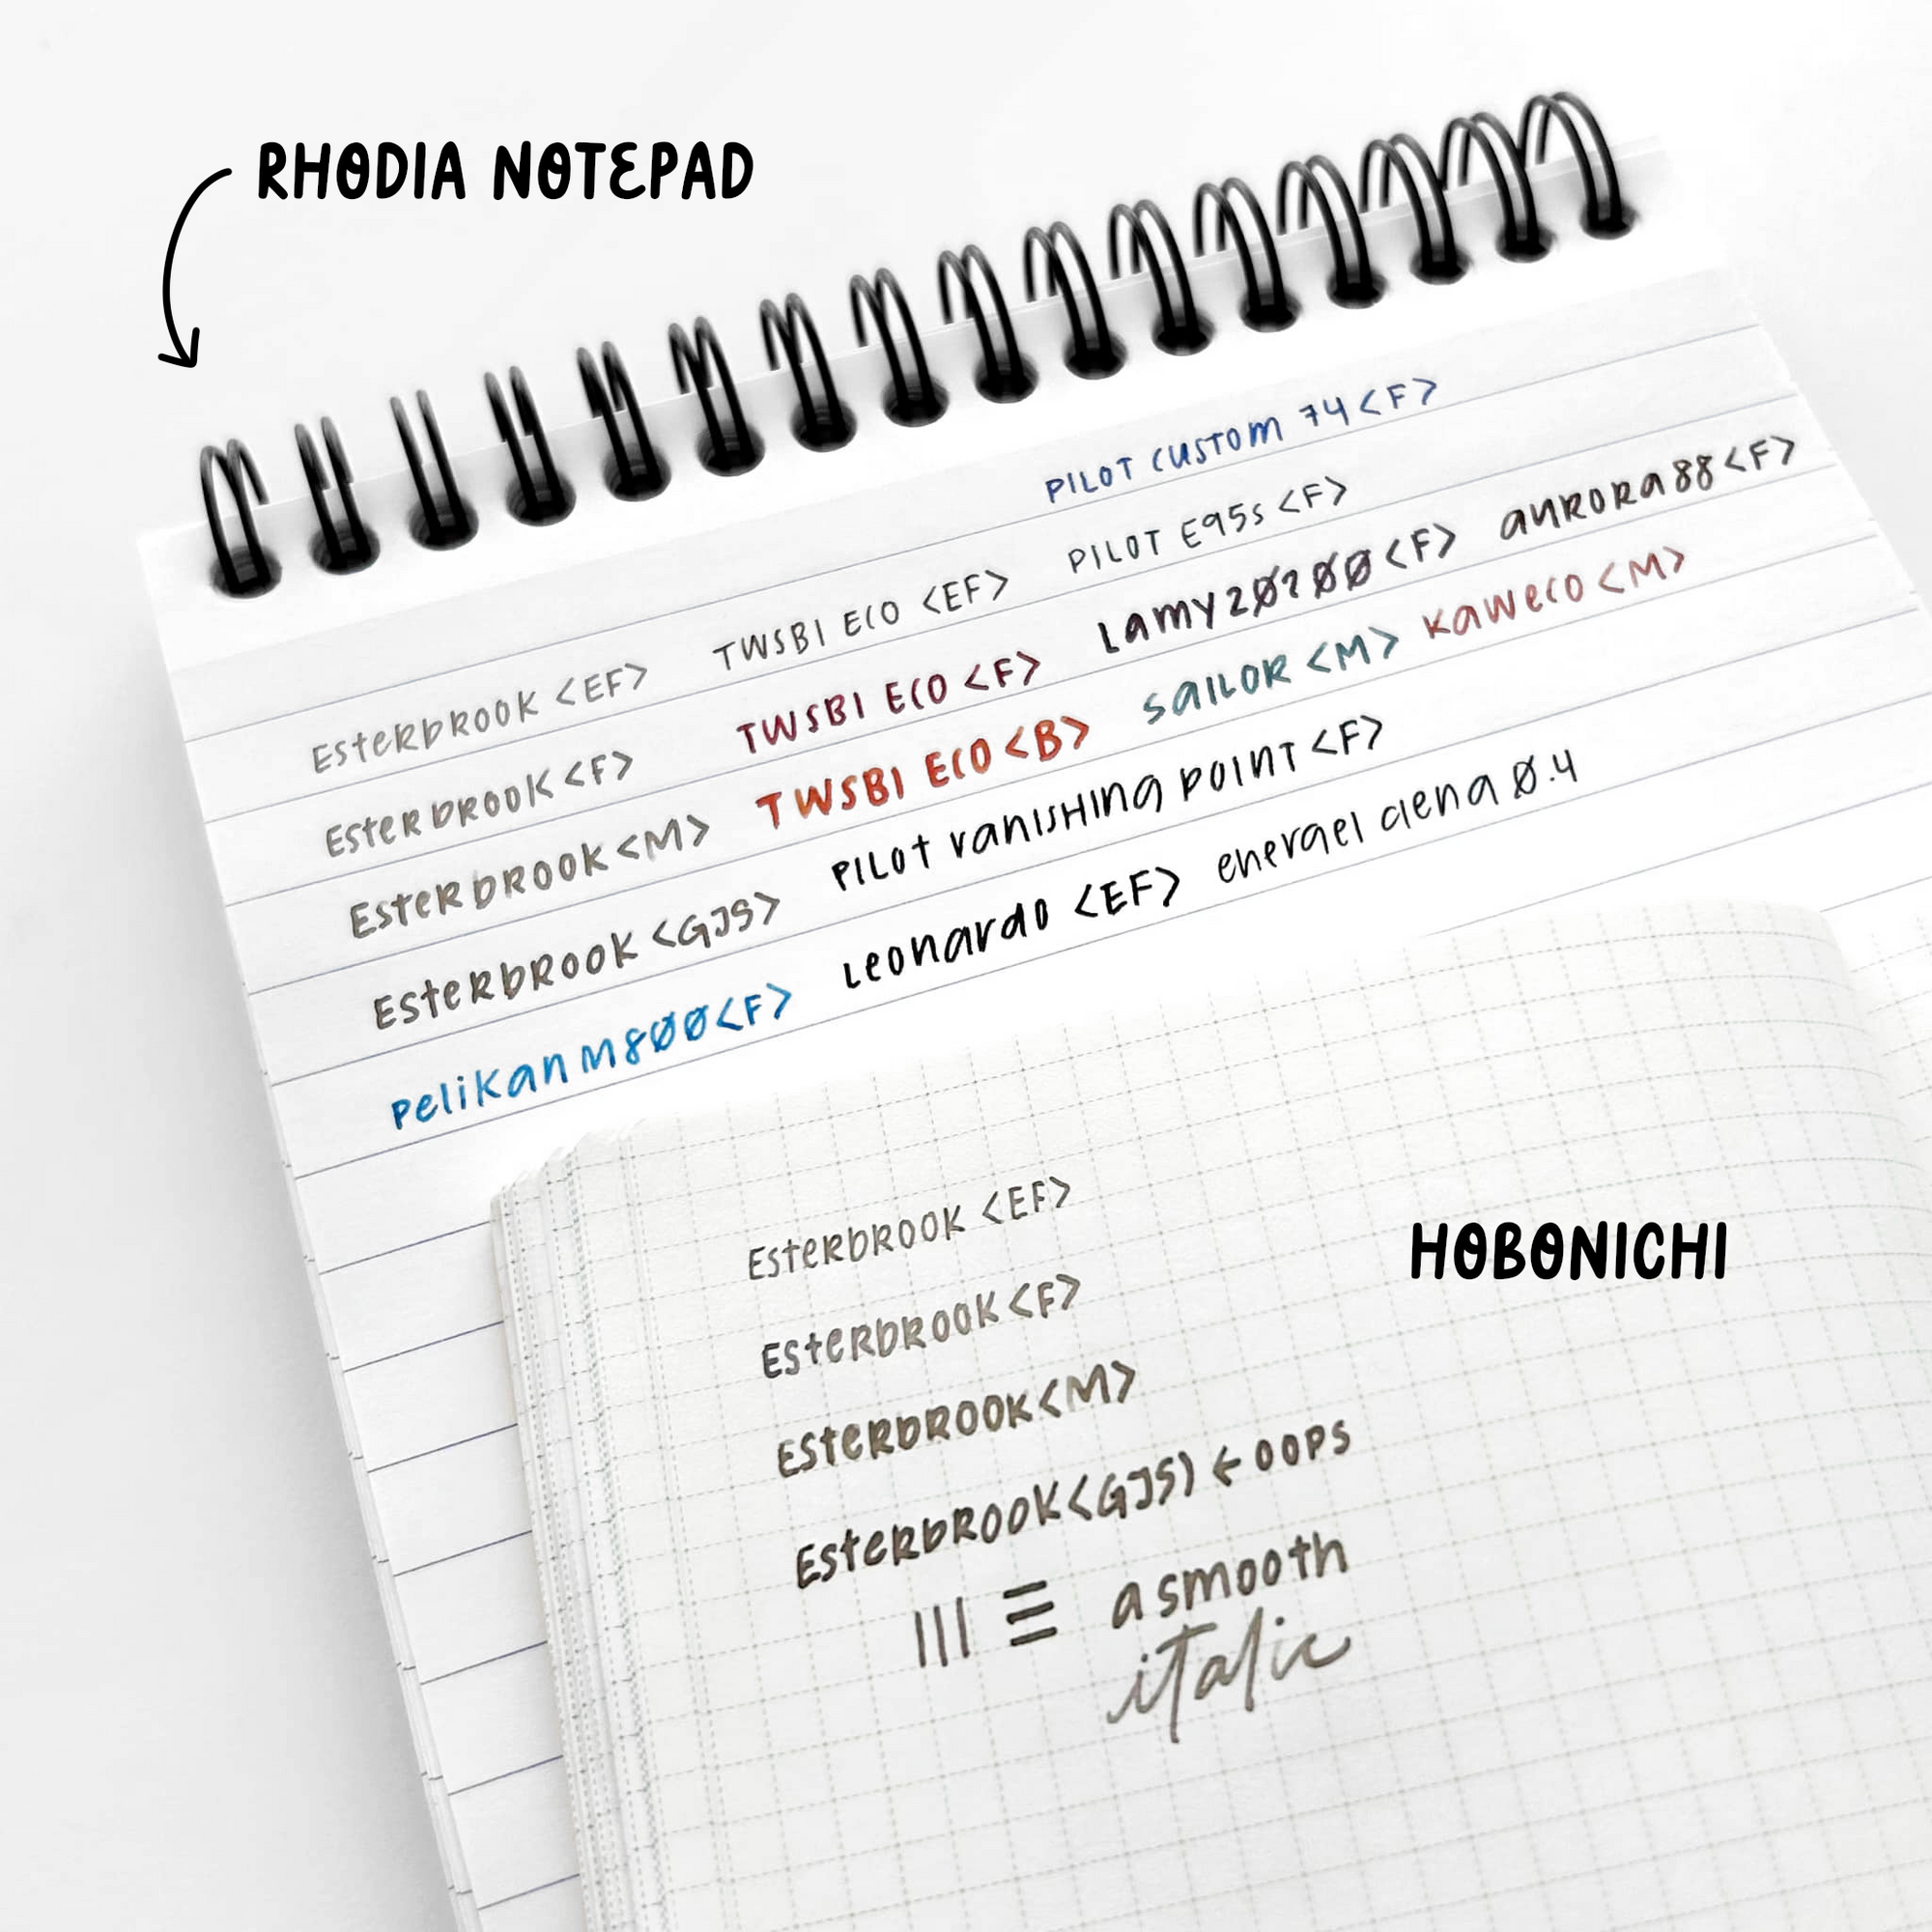 RHODIA NOTEPAD
PILOT CUSTOM 74 <F>
Esterbrook <EF> TWSBI ECO <EF> PILOT E95s <F>
Esterbrook <F> TWSBI ECO <F> Lamy 2000 <F> aurora 88 <F>
Esterbrook <M> TWSBI ECO <B> SAILOR <M> kaweco <M>
Esterbrook <GJS> PILOT vanishing point <F>
pelikan m800 <F> Leonardo <EF> energel clena 0.4
HOBONICHI
Esterbrook <EF>
Esterbrook <F>
Esterbrook <M>
Esterbrook <GJS) ← OOPS
a smooth
italic